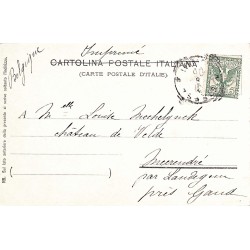 Imprimé
Belgique
CARTOLINA POSTALE ITALIANA
(CARTE POSTALE D'ITALIE)
A Mlle Louise Mechelynck
château de Velde
Meerendré
par Landegem
près Gand
NB. Sul lato anteriore della presente si scrive soltanto l'indirizzo.